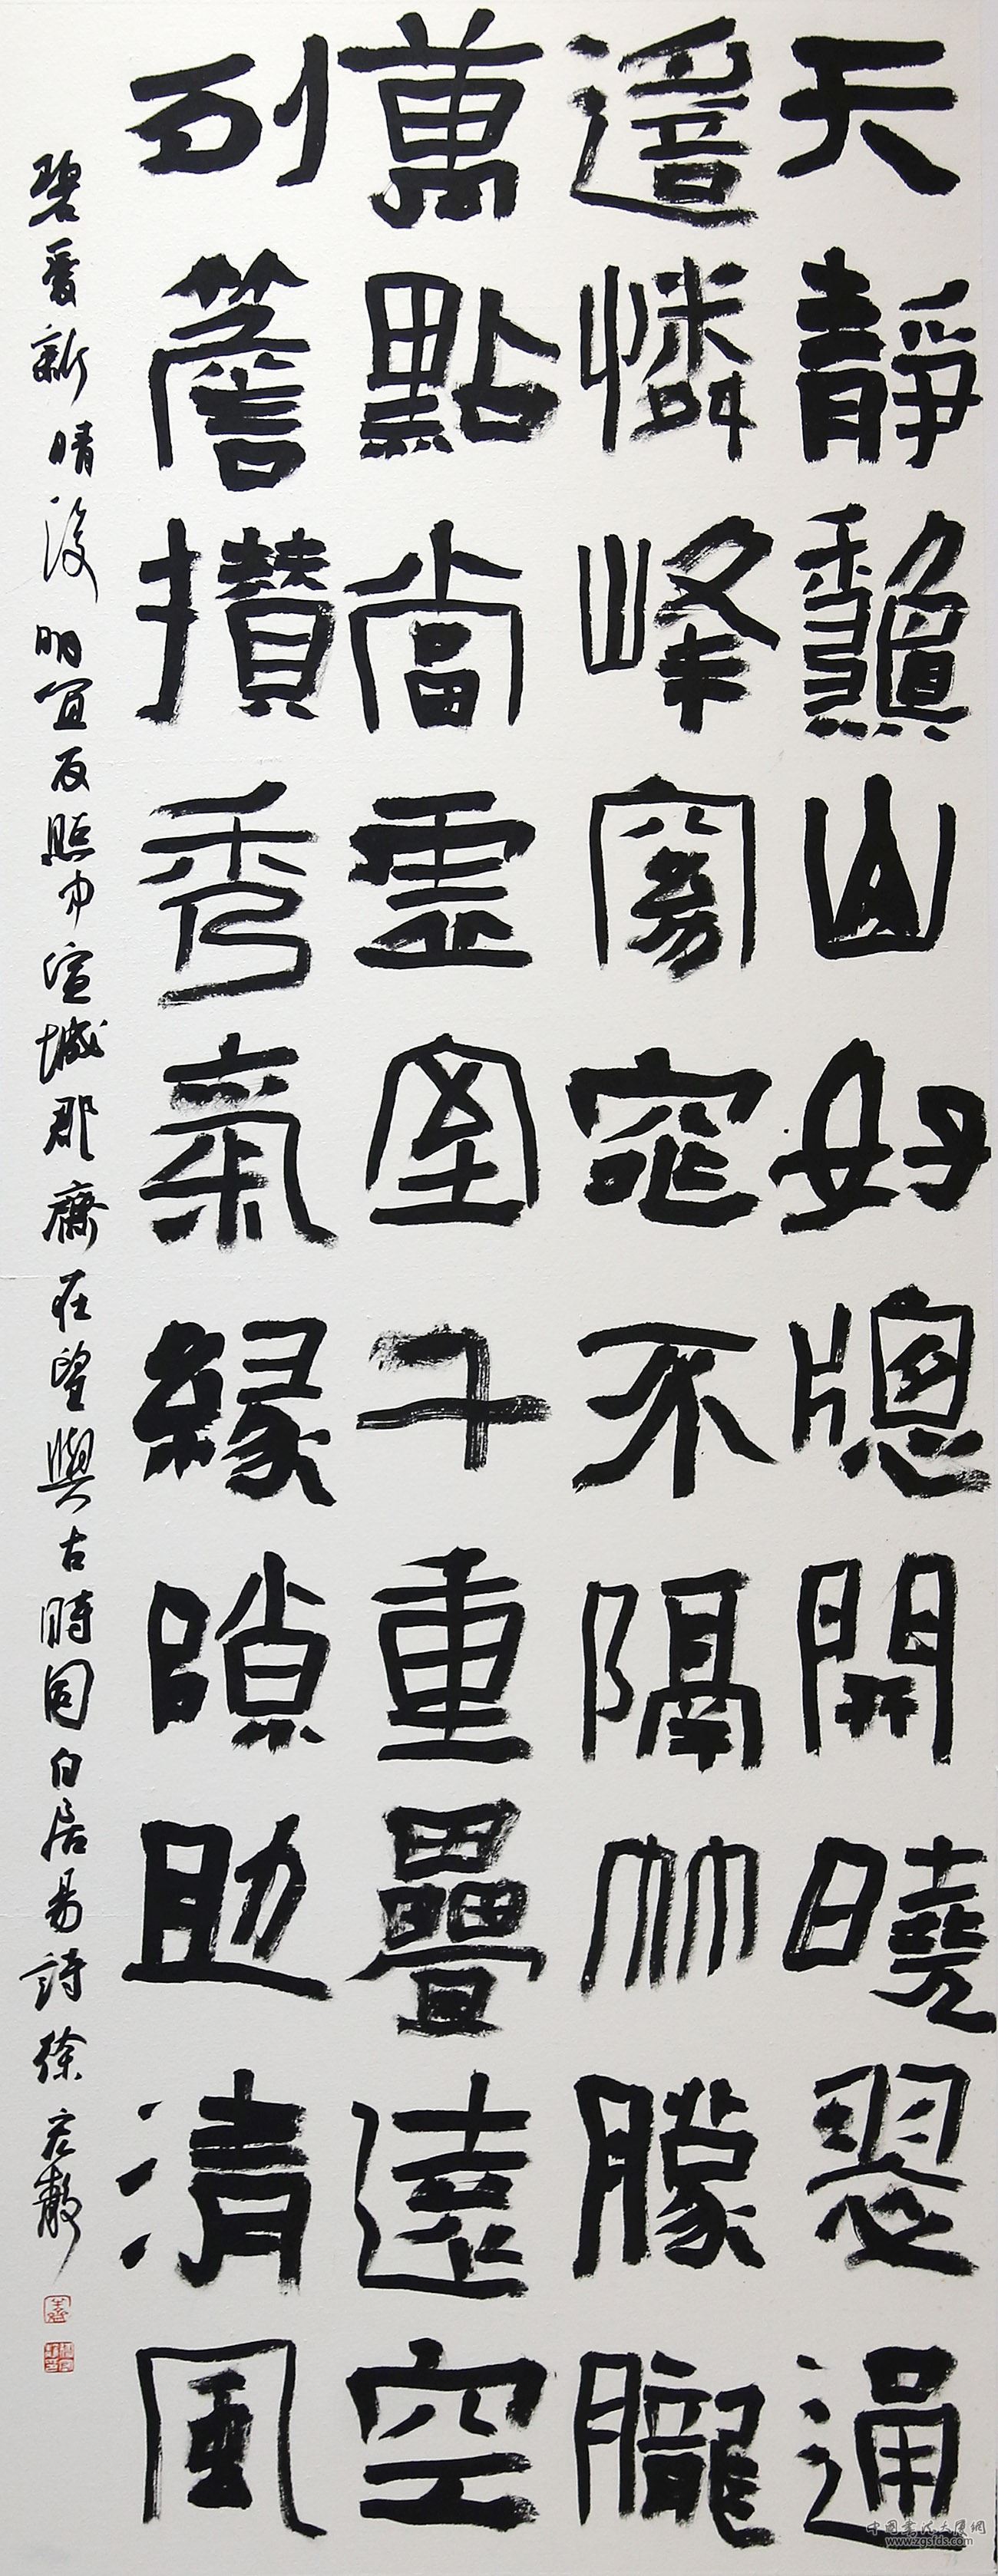 天靜龝山好牕開曉翠通
遙憐峰窈窕不隔竹朦朧
萬點當虛室千重疊遠空
列簷攢秀氣緣隙助清風
碧愛新晴後明宜反照中宣城郡齋在望與古時同白居易詩徐
中國書法大廈網
www.zgsfds.com